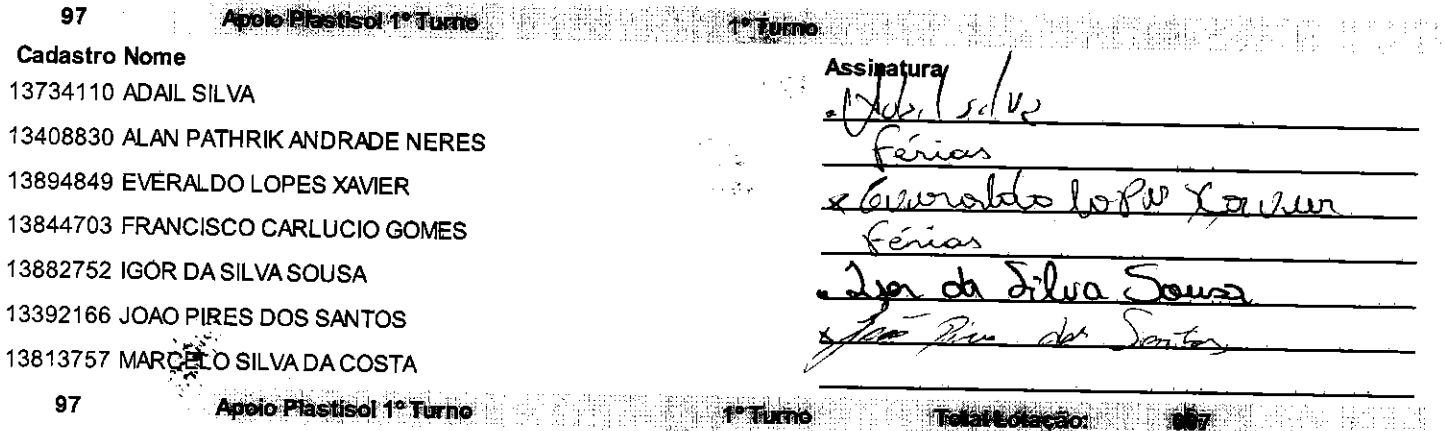 97 Apoio Plastisol 1° Turno 1° Turno
Cadastro Nome Assinatura
13734110 ADAIL SILVA Adail silva
13408830 ALAN PATHRIK ANDRADE NERES Férias
13894849 EVERALDO LOPES XAVIER Everaldo lopes Xavier
13844703 FRANCISCO CARLUCIO GOMES Férias
13882752 IGOR DA SILVA SOUSA Igor da Silva Sousa
13392166 JOAO PIRES DOS SANTOS João Pires dos Santos
13813757 MARCELO SILVA DA COSTA
97 Apoio Plastisol 1° Turno 1° Turno Total Lotação: 007